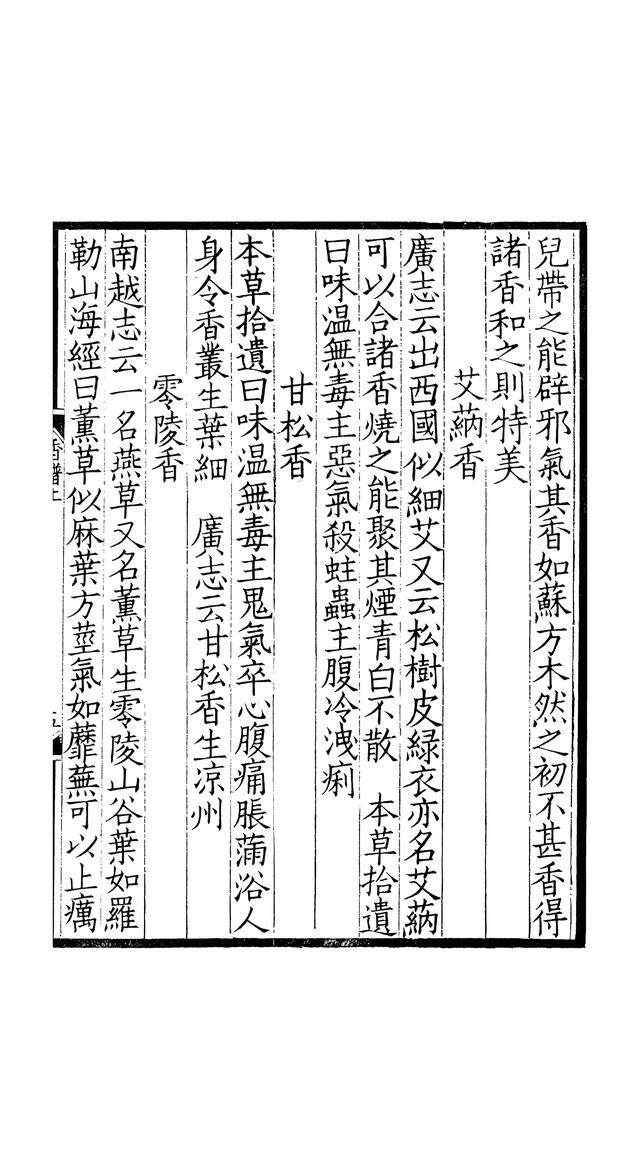 兒帶之能辟邪氣其香如蘇方木然之初不甚香得
諸香和之則特美
艾蒳香
廣志云出西國似細艾又云松樹皮綠衣亦名艾蒳
可以合諸香燒之能聚其煙青白不散　本草拾遺
曰味溫無毒主惡氣殺蛀蟲主腹冷洩痢
甘松香
本草拾遺曰味溫無毒主鬼氣卒心腹痛脹滿浴人
身令香叢生葉細　廣志云甘松香生涼州
零陵香
南越志云一名燕草又名薰草生零陵山谷葉如羅
勒山海經曰薰草似麻葉方莖氣如蘼蕪可以止癘
香譜上
五